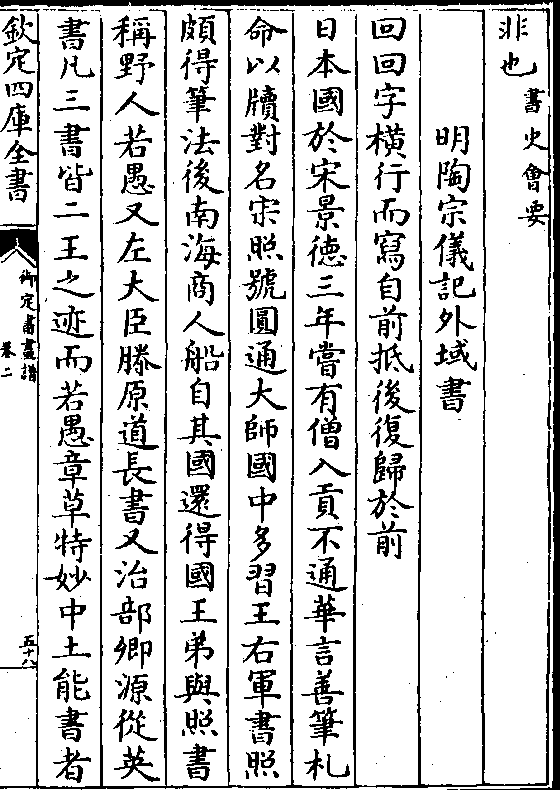 非也書史會要
明陶宗儀記外域書
回回字橫行而寫自前抵後復歸於前
日本國於宋景德三年嘗有僧入貢不通華言善筆札
命以牘對名宋照號圓通大師國中多習王右軍書照
頗得筆法後南海商人船自其國還得國王弟與照書
稱野人若愚又左大臣滕原道長書又治部卿源從英
書凡三書皆二王之迹而若愚章草特妙中土能書者
欽定四庫全書
御定書畫譜
卷二
五十八